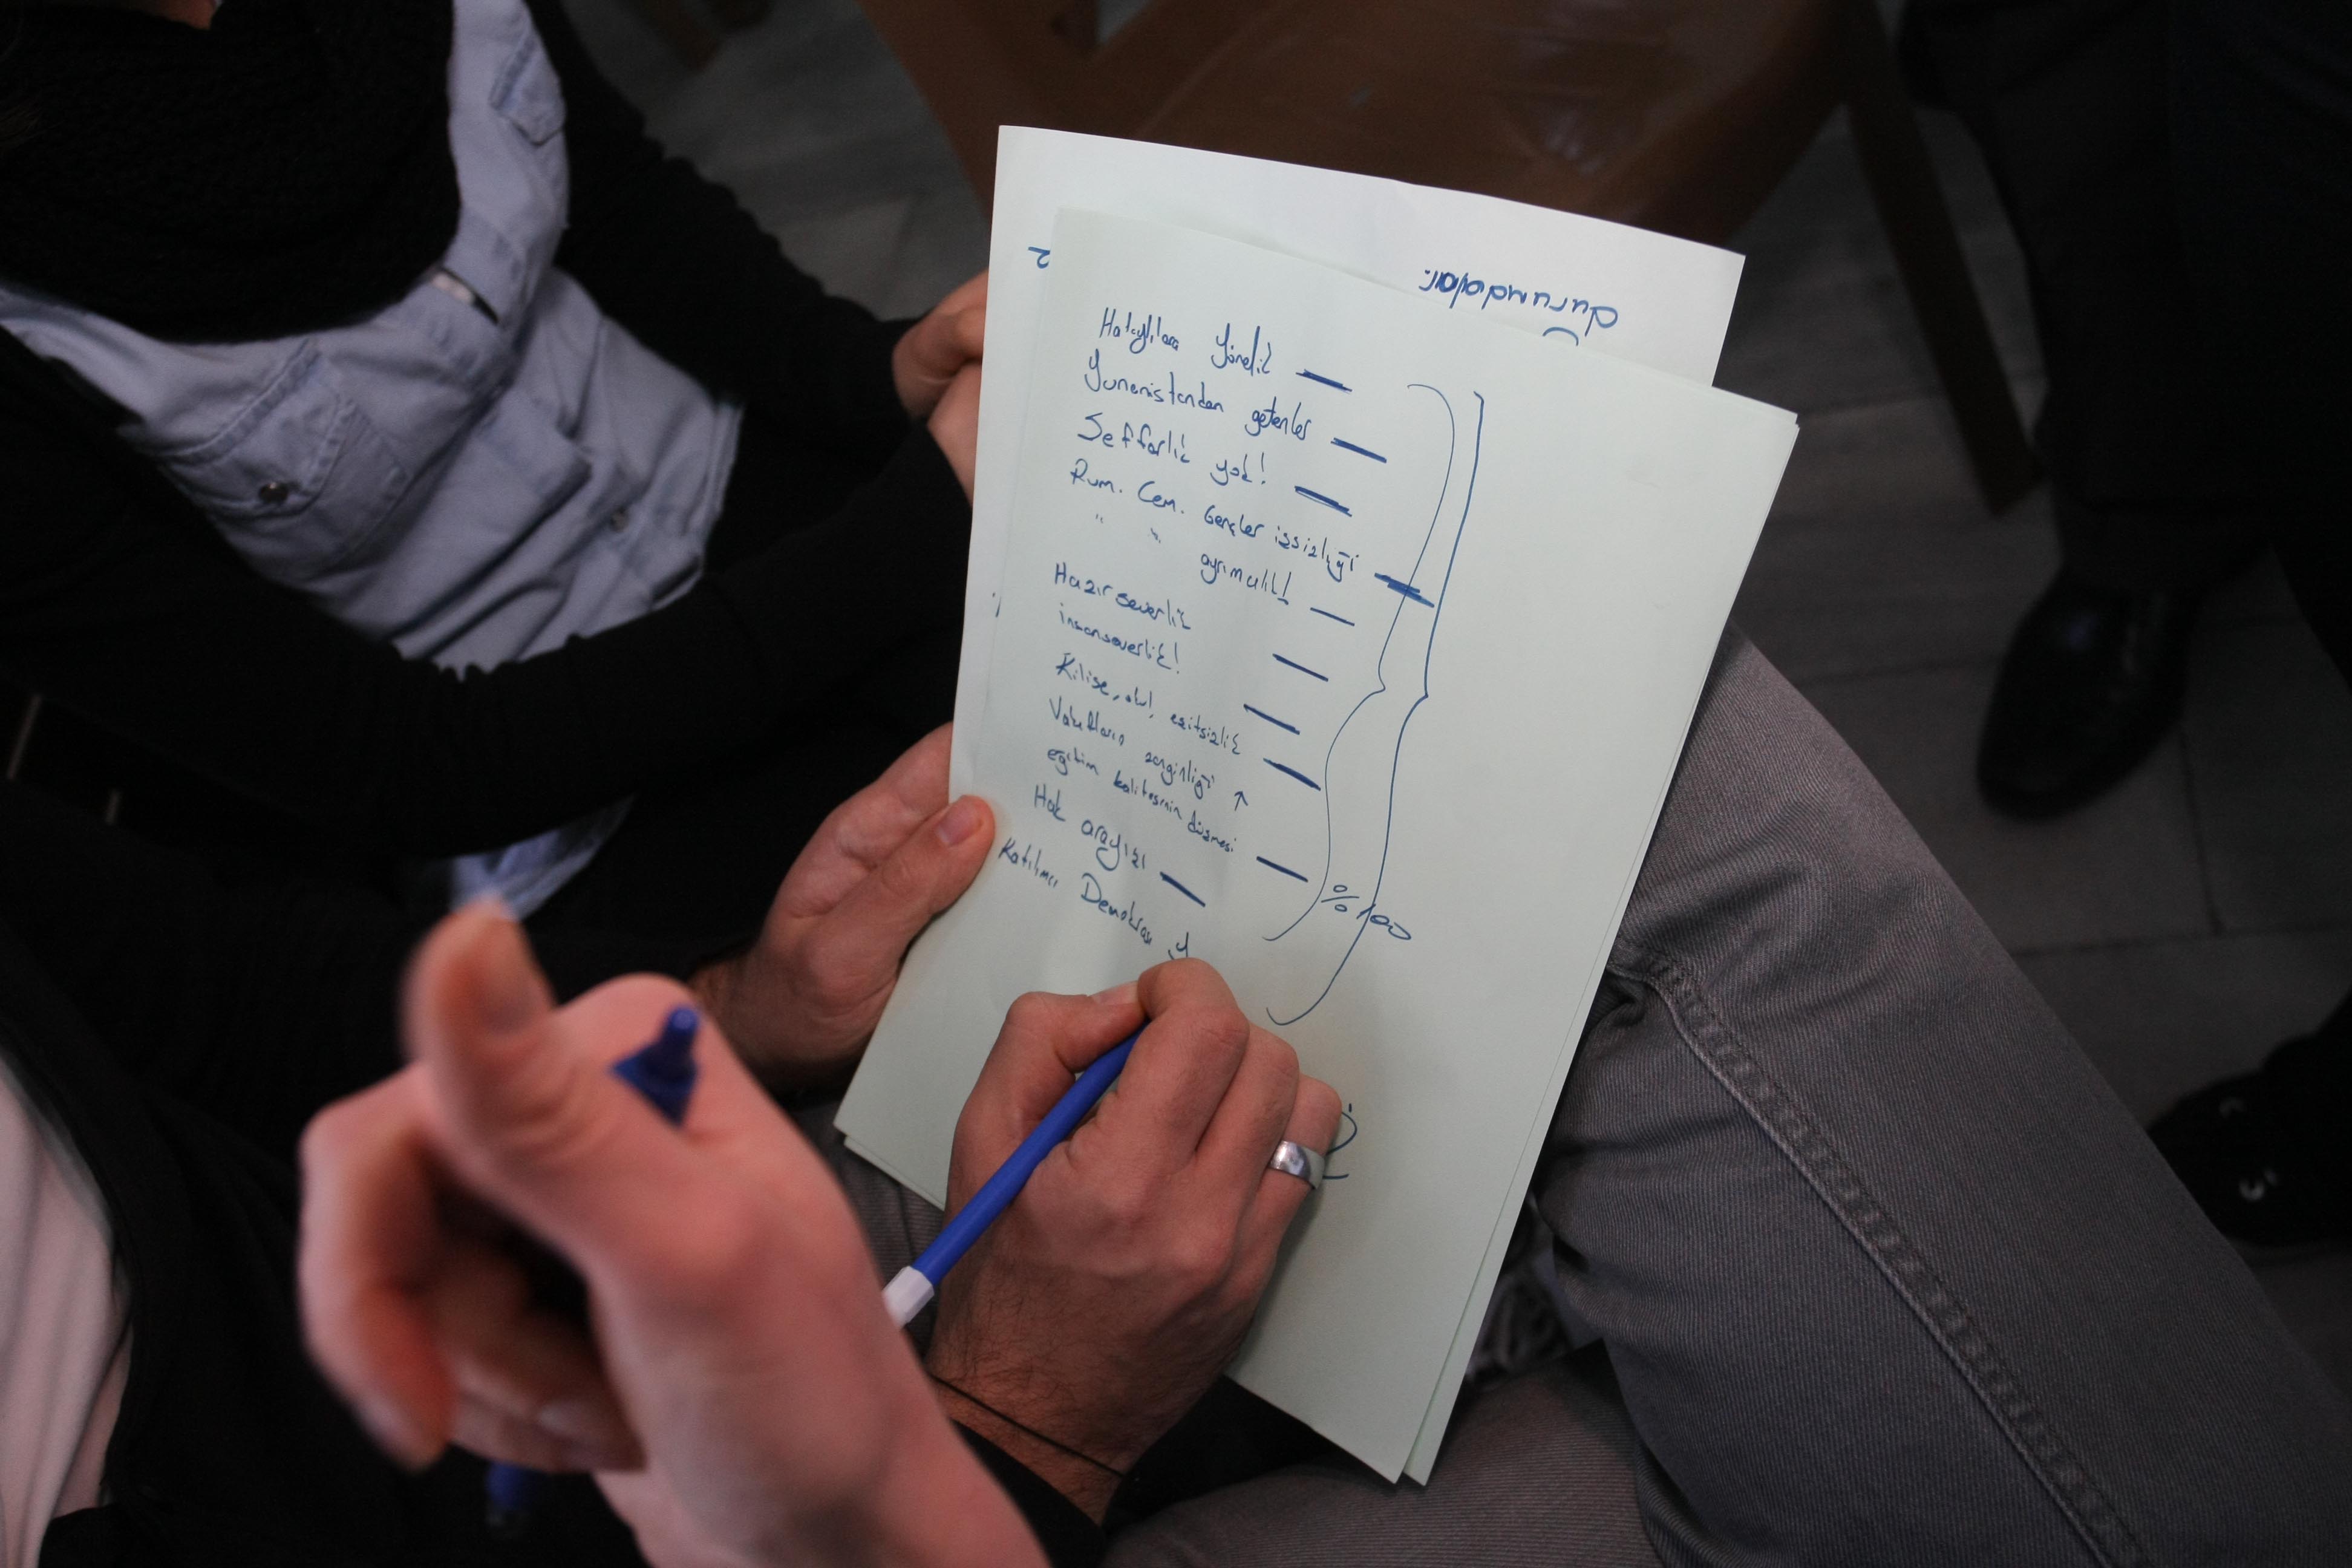 durumdalar.
2
Hataylılara yönelik —
Yunanistandan gelenler —
Şeffaflık yok! —
Rum. Cem. Gençler işsizliği —
" " ayrımcılık! —
Hazırseverlik —
insanseverlik! —
Kilise, okul, eşitsizlik —
Vakıfların zenginliği ↑
eğitim kalitesinin düşmesi —
Hak arayışı —
% 100
Katılımcı Demokrasi y